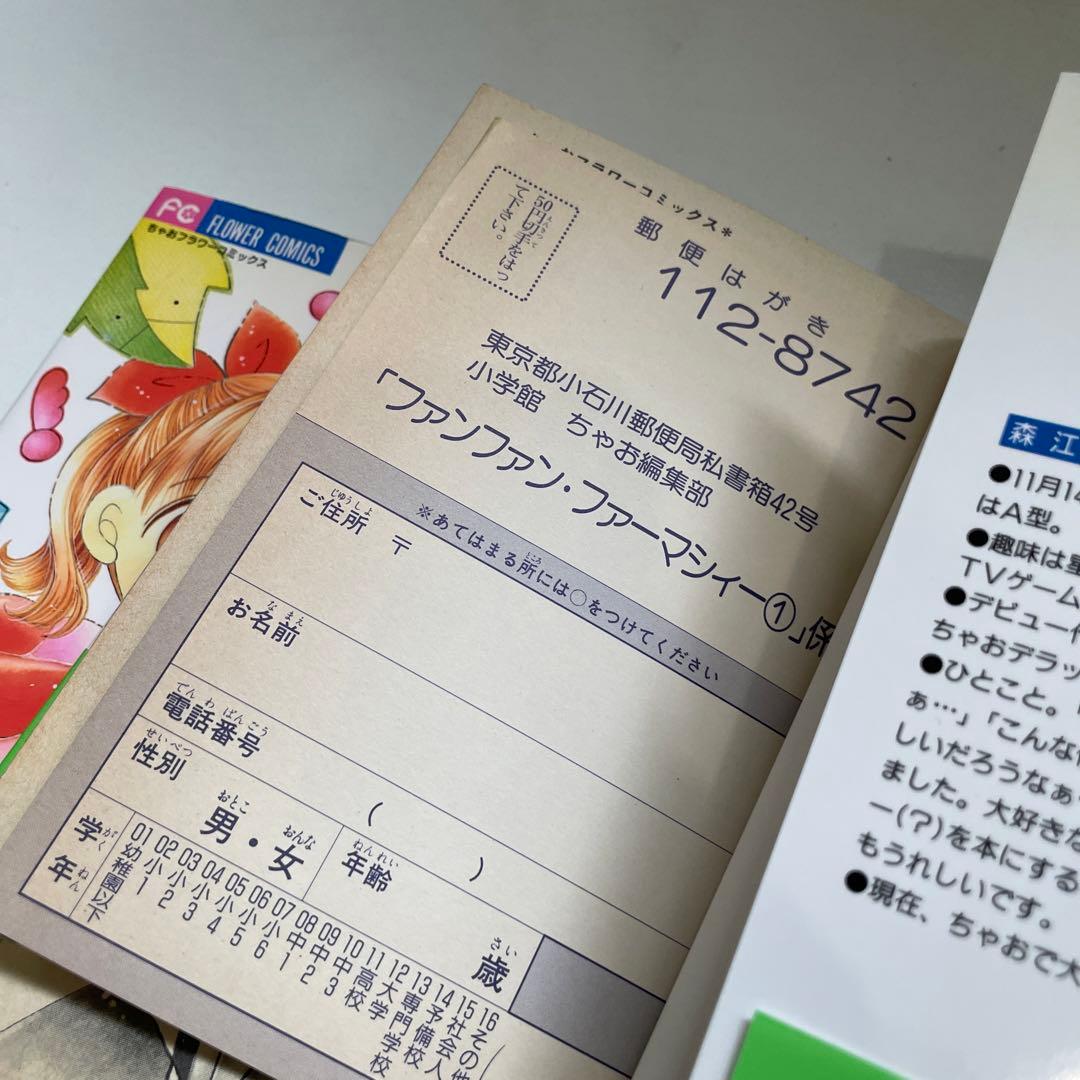 FC FLOWER COMICS
ちゃおフラワーコミックス
おフラワーコミックス*
50円切手をはっ
て下さい。
郵便はがき
112-8742
東京都小石川郵便局私書箱42号
小学館 ちゃお編集部
「ファンファン・ファーマシィー①」係
※あてはまる所には○をつけてください
ご住所 〒
お名前
電話番号
( )
性別
男・女
年齢
歳
学年
01幼稚園以下
02小1
03小2
04小3
05小4
06小5
07小6
08中1
09中2
10中3
11高校
12大学
13専門学校
14予備校
15社会人
16その他(
森江
●11月14
はA型。
●趣味は星
TVゲーム
●デビュー作
ちゃおデラッ
●ひとこと。
ぁ…」「こんな
しいだろうなぁ
ました。大好きな
ー(?)を本にする
もうれしいです。
●現在、ちゃおで大